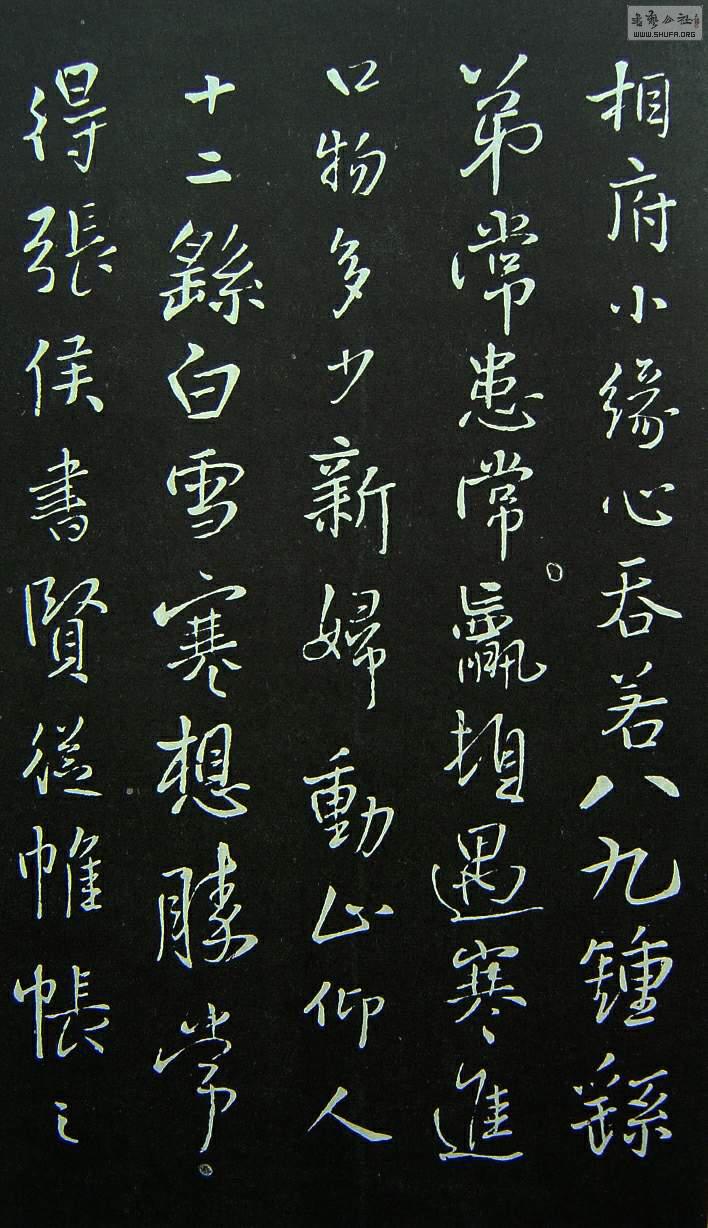 相府小緣心吞若八九鍾繇
弟常患常羸頓遇寒進
口物多少新婦動止仰人
十二繇白雪寒想勝常
得張侯書賢從帷帳之
书艺公社
WWW.SHUFA.ORG